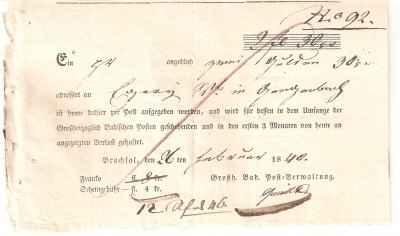 No 92.
2 fl 30 xr
Ein angeblich zwei Gulden 30 xr
adressirt an in Gengenbach
ist heute dahier zur Post aufgegeben worden, und wird für dessen in dem Umfange der
Großherzoglich Badischen Posten geschehenden und in den ersten 3 Monaten von heute an
angezeigten Verlust gehaftet.
Bruchsal, den 26 ten Februar 1840.
Franko fl. 8 kr. Großh. Bad. Post-Verwaltung.
Scheingebühr fl. 4 kr.
12